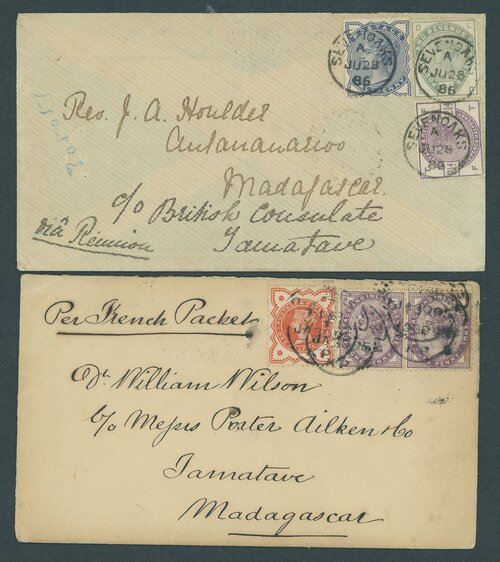 SEVENOAKS
A
JU 28
86
SEVENOAKS
A
JU 28
86
SEVENOAKS
A
JU 28
86
Rev. J. A. Houlder
Antananarivo
Madagascar
c/o British Consulate
viâ Réunion
Tamatave
Per French Packet
Dr. William Wilson
c/o Messrs Porter Aitken & Co
Tamatave
Madagascar